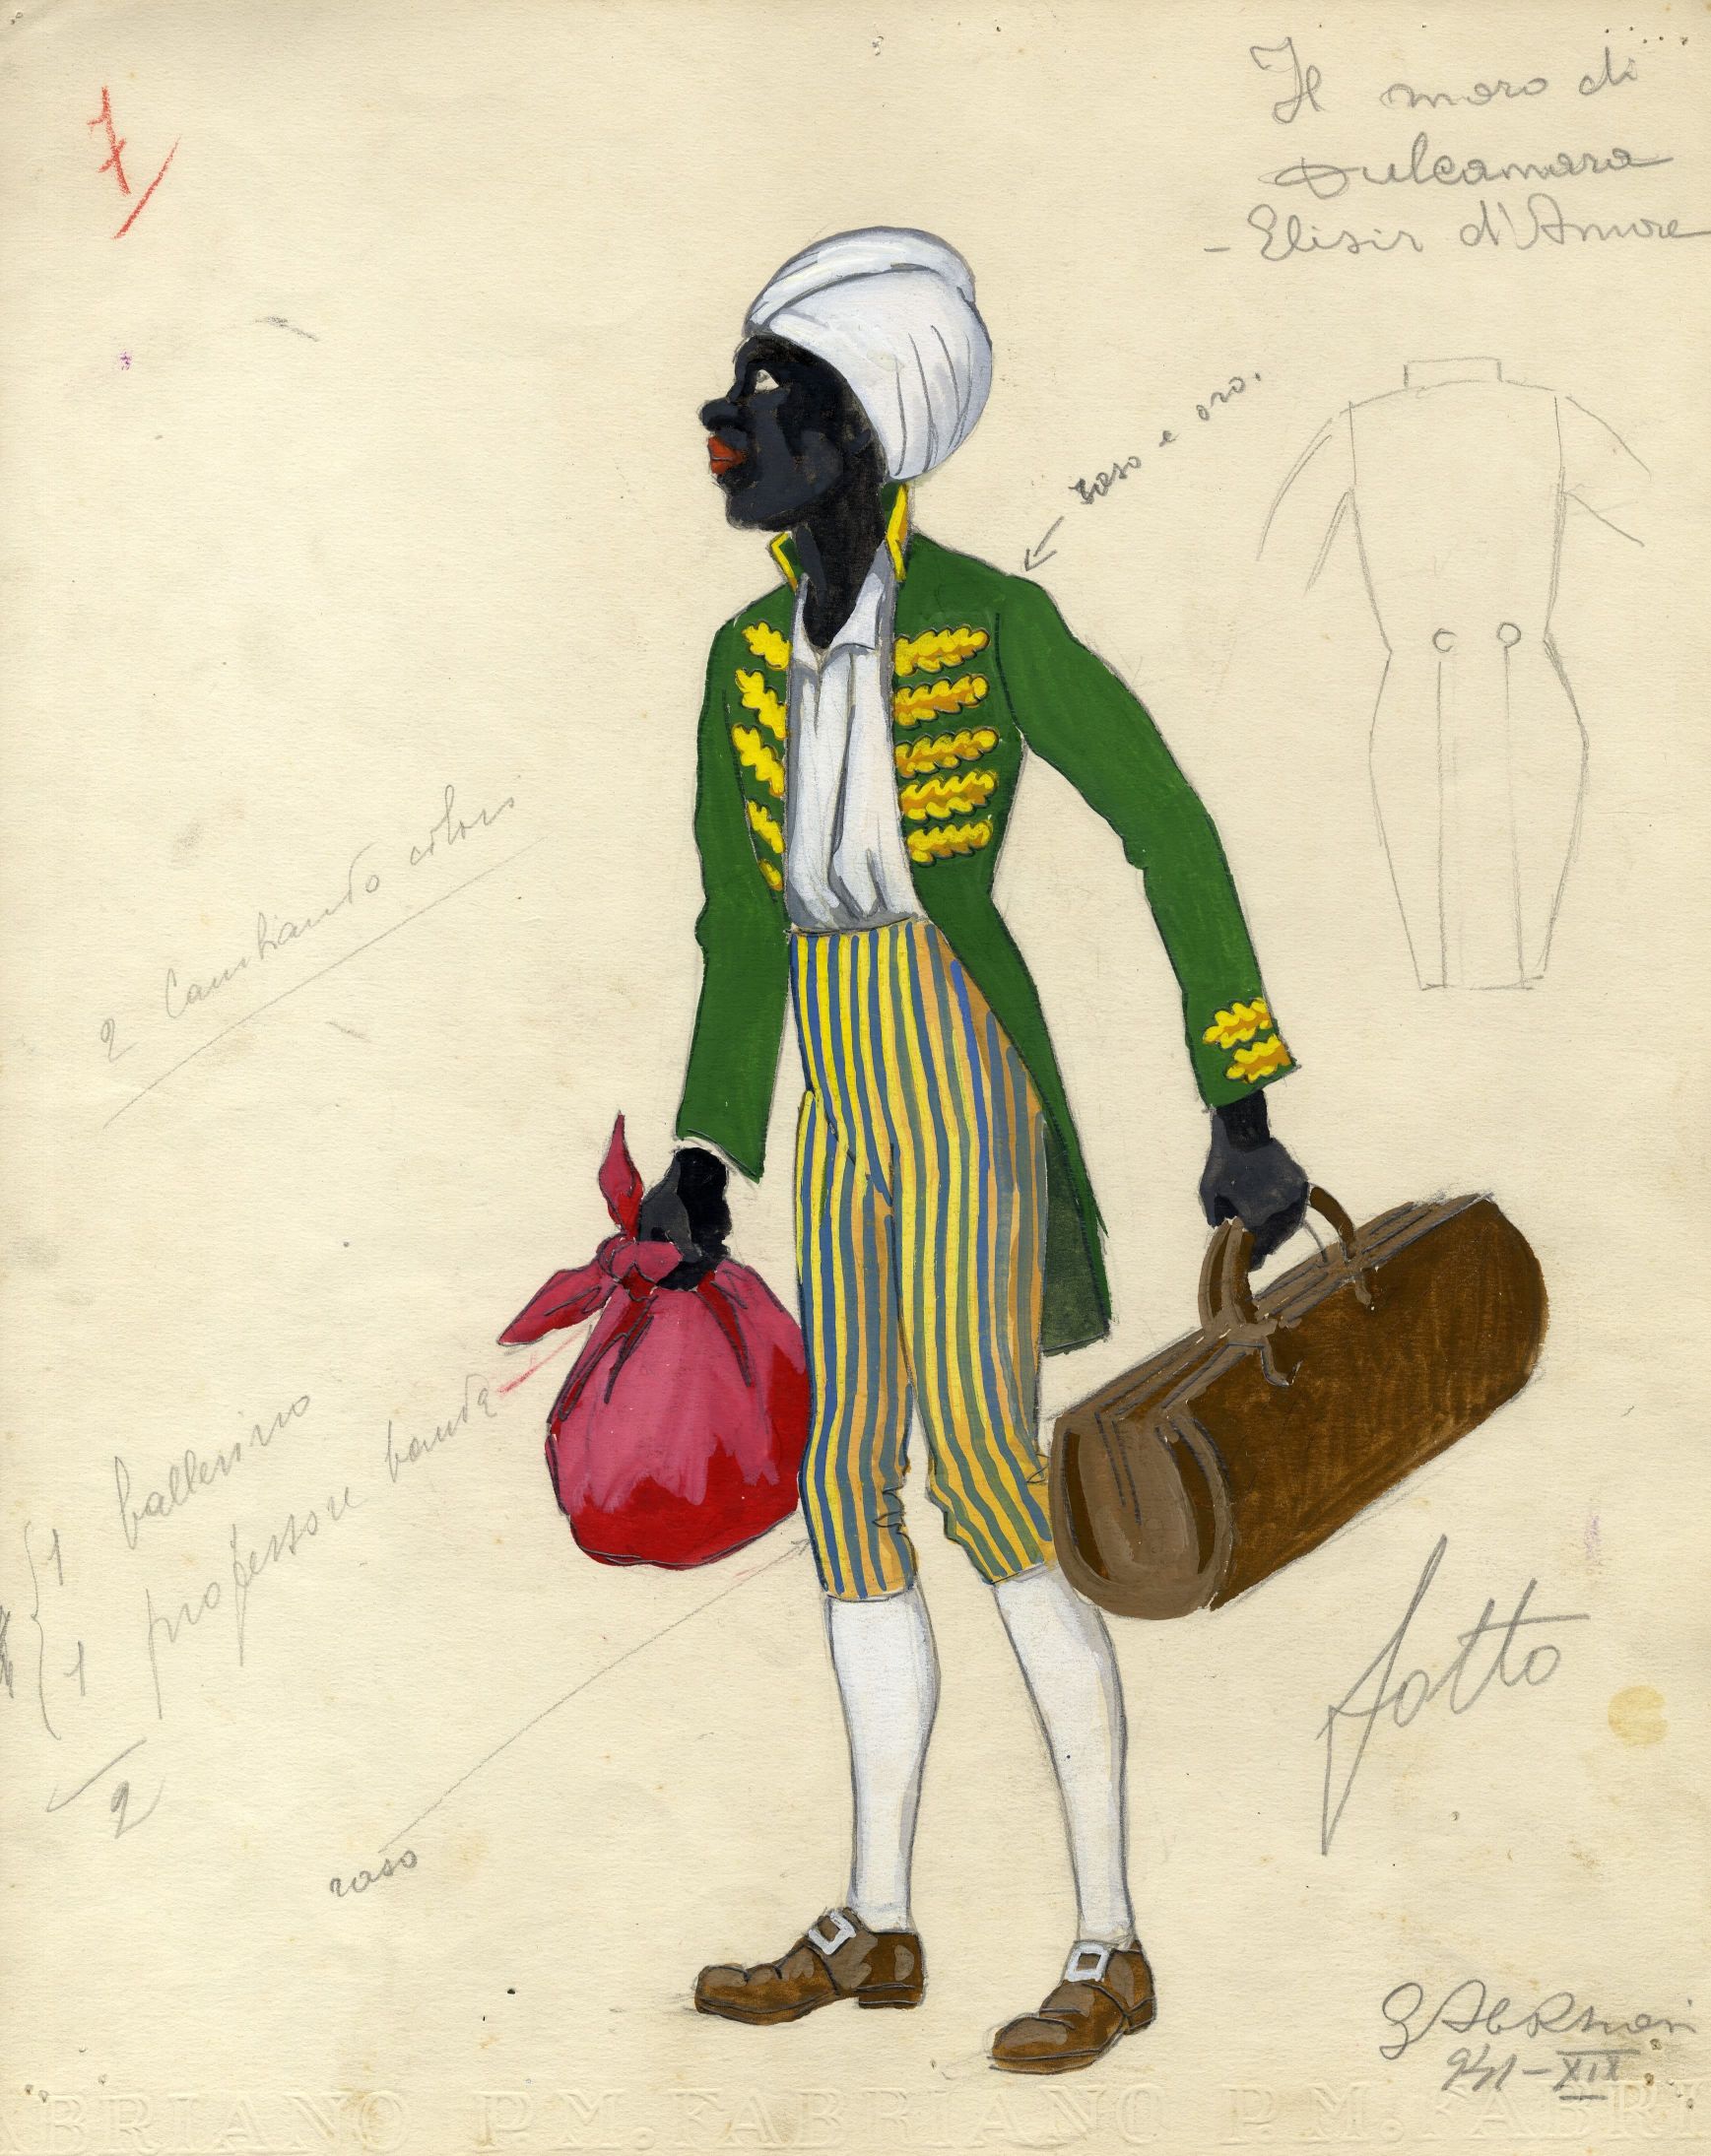 7
Il moro di
Dulcamara
- Elisir d'Amore
raso e oro.
2 Cambiando colori
1 ballerino
1 professore banda
2
raso
fatto
941-XIX
ABRIANO P.M. FABRIANO P.M. FABRI